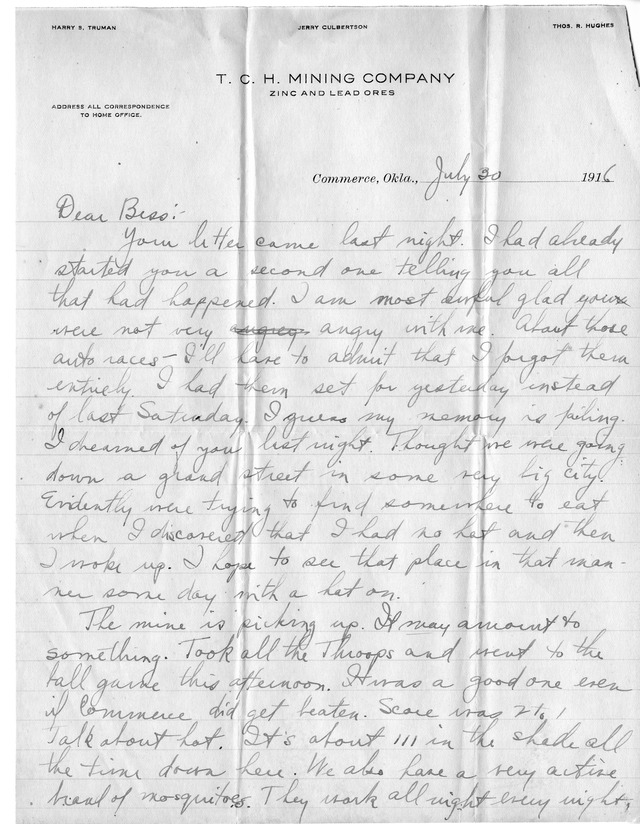 HARRY S. TRUMAN JERRY CULBERTSON THOS. R. HUGHES
T. C. H. MINING COMPANY
ZINC AND LEAD ORES
ADDRESS ALL CORRESPONDENCE
TO HOME OFFICE.
Commerce, Okla., July 30 1916
Dear Bess:-
Your letter came last night. I had already
started you a second one telling you all
that had happened. I am most awful glad you
were not very angry with me. About those
auto races - I'll have to admit that I forgot them
entirely. I had them set for yesterday instead
of last Saturday. I guess my memory is failing.
I dreamed of you last night. Thought we were going
down a grand street in some very big city.
Evidently were trying to find somewhere to eat
when I discovered that I had no hat and then
I woke up. I hope to see that place in that man-
ner some day with a hat on.
The mine is picking up. It may amount to
something. Took all the Throops and went to the
ball game this afternoon. It was a good one even
if Commerce did get beaten. Score was 2 to 1
Talk about hot. It's about 111 in the shade all
the time down here. We also have a very active
brand of mosquitoes. They work all night every night,